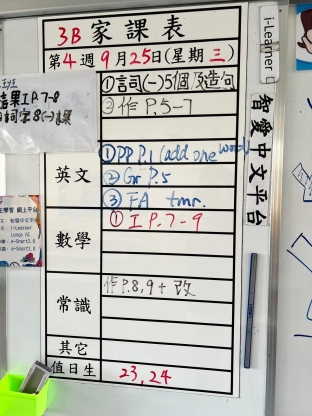 3B 家課表
第4週9月25日(星期三)
①言司(一)5個及造句
②作 P.5-7
英文
①PP P.1 (add one word)
②Gr P.5
③FA tmr.
數學
①I P.7-9
常識
作P.8,9 + 改
其它
值日生
23,24
i-Learner
智愛中文平台
I P.7-8